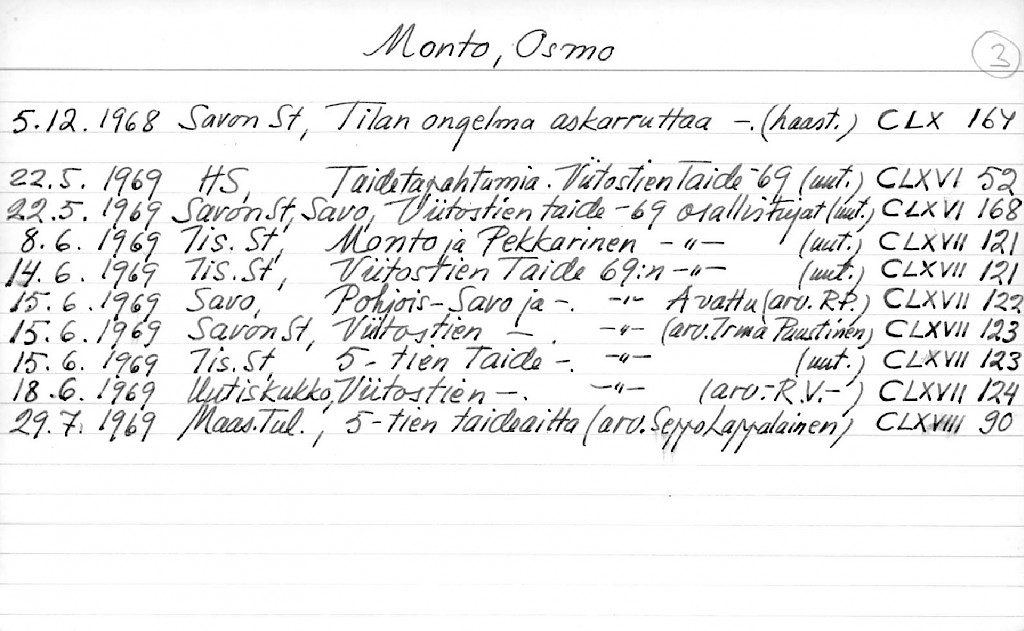 Monto, Osmo
3
5.12.1968 Savon St, Tilan ongelma askarruttaa -. (haast.) CLX 164
22.5.1969 HS, Taidetapahtumia. Viitostien Taide -69 (uut.) CLXVI 52
22.5.1969 Savon St, Savo, Viitostien taide -69 osallistujat (uut.) CLXVI 168
8.6.1969 Iis. St, Monto ja Pekkarinen -"- (uut.) CLXVII 121
14.6.1969 Iis. St, Viitostien Taide 69:n -"- (uut.) CLXVII 121
15.6.1969 Savo, Pohjois-Savo ja -. -"- Avattu (arv. R.P.) CLXVII 122
15.6.1969 Savon St, Viitostien -. -"- (arv. Irma Puustinen) CLXVII 123
15.6.1969 Iis. St, 5-tien Taide -. -"- (uut.) CLXVII 123
18.6.1969 Uutiskukko, Viitostien -. -"- (arv. -R.V.-) CLXVII 124
29.7.1969 Maas. Tul., 5-tien taideaitta (arv. Seppo Lappalainen) CLXVIII 90